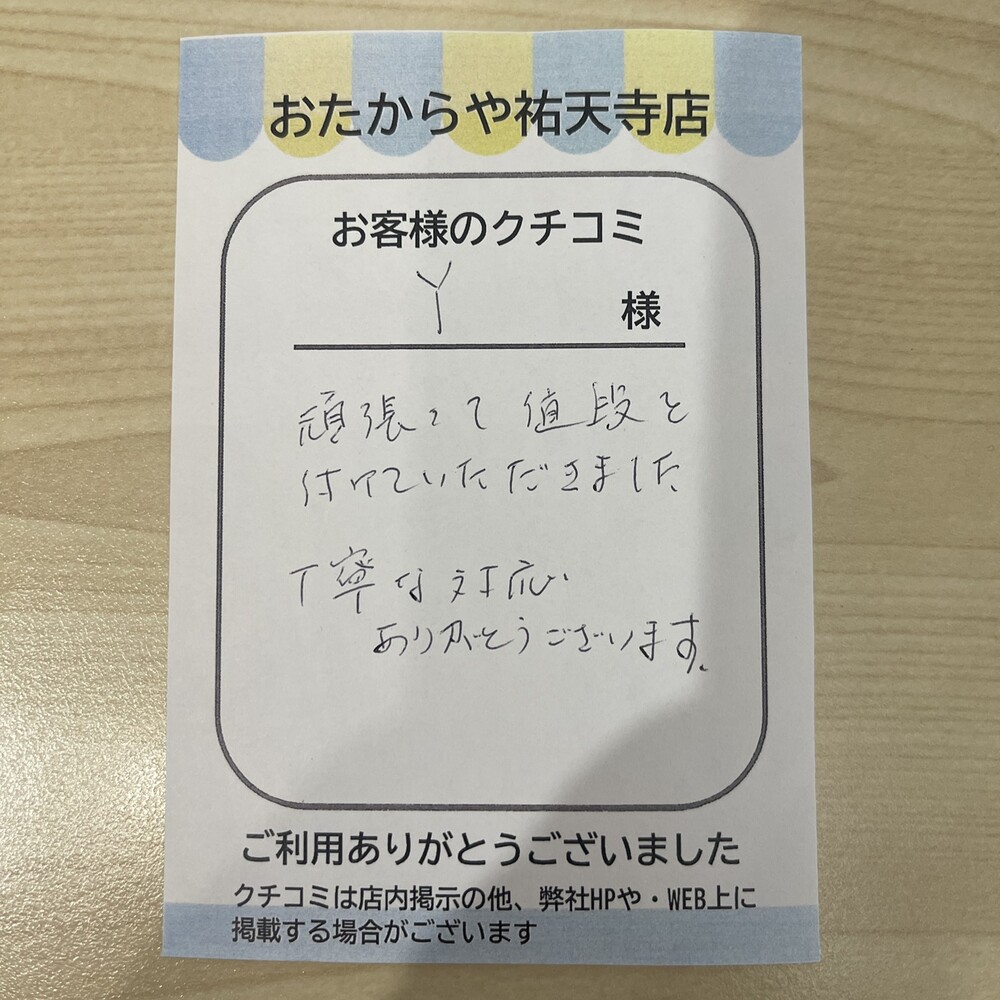 おたからや祐天寺店
お客様のクチコミ
Y 様
頑張って値段を
付けていただきました
丁寧な対応
ありがとうございます。
ご利用ありがとうございました
クチコミは店内掲示の他、弊社HPや・WEB上に
掲載する場合がございます